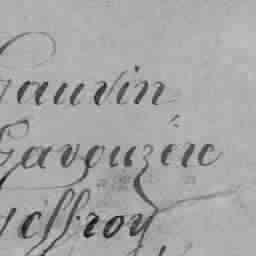 Gauvin
Gavouzére
Jeffroy